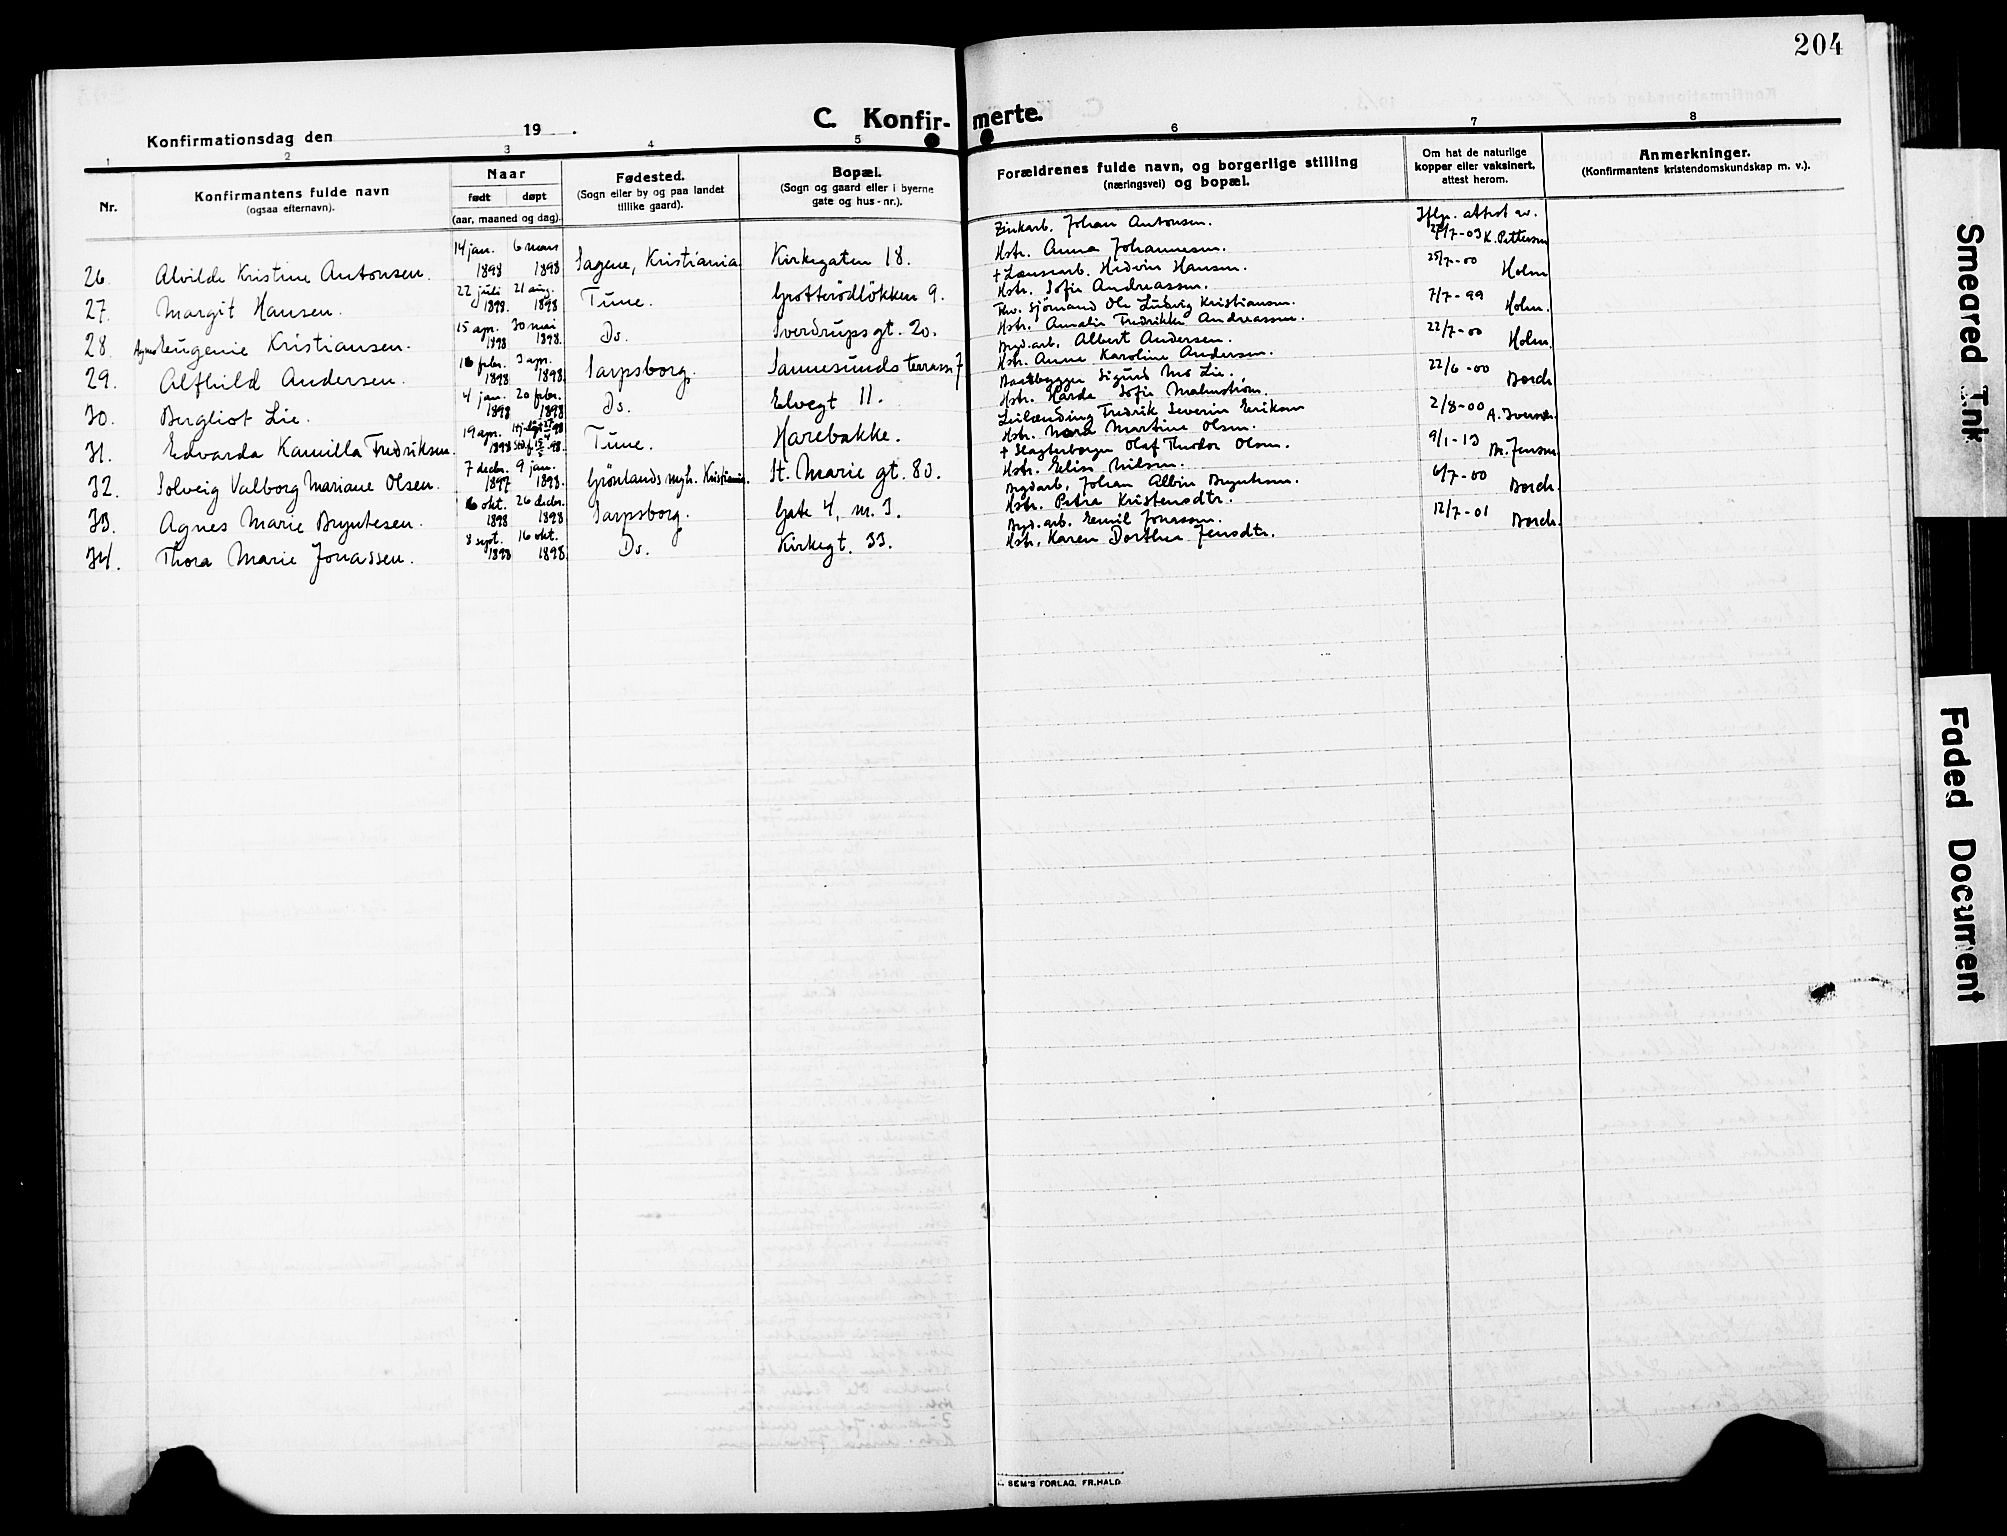 204
C. Konfirmerte.
Konfirmationsdag den 19 .
1 2 3 4 5 6 7 8
Nr.
Konfirmantens fulde navn
(ogsaa efternavn).
Naar
født døpt
(aar, maaned og dag).
Fødested.
(Sogn eller by og paa landet
tillike gaard).
Bopæl.
(Sogn og gaard eller i byerne
gate og hus-nr.).
Forældrenes fulde navn, og borgerlige stilling
(næringsvei) og bopæl.
Om hat de naturlige
kopper eller vaksinert,
attest herom.
Anmerkninger.
(Konfirmantens kristendomskundskap m. v.).
26. Alvilde Kristine Antonsen. 14 jan. 1898 6 mars 1898 Sagene, Kristiania Kirkegaten 18. Zinkarb. Johan Antonsen. Iflg. attest av.
Hstr. Anna Johannesen. 27/7-03 K. Pettersen
27. Margit Hansen. 22 juli 1898. 21 aug. 1898 Tune. Grotterødløkken 9. + Lænsearb. Hedvin Hansen. 25/7-00 Holm
Hstr. Sofie Andreassen.
28. Agnes Eugenie Kristiansen. 15 apr. 1898 30 mai 1898. Ds. Sverdrupsgt. 20. Fhv. Sjømand Ole Ludvig Kristiansen. 7/7-99 Holm.
Hstr. Amalie Fredrikke Andreassen.
29. Alfhild Andersen. 16 febr. 1898 3 apr. 1898. Sarpsborg. Sannesunds terrasse 7 Bryd.arb. Albert Andersen. 22/7-00 Holm.
Hstr. Anne Karoline Andersen.
30. Bergliot Lie. 4 jan. 1898 20 febr. 1898 Ds. Elvegt 11. Baatbygger Sigurd Mo Lie. 22/6-00 Borch
Hstr. Sofie Malmstrøm.
31. Edvarda Kamilla Fredriksen. 19 apr. 1898 Tune. Harebakke. Leilænding Fredrik Severin Eriksen 2/8-00 A. Iversen
Hstr. Nora Martine Olsen.
32. Solveig Valborg Mariane Olsen. 7 decbr. 1897 9 jan. 1898. Grønlands mgh. Kristiania. St. Marie gt. 80. + Slagterborger Olaf Theodor Olsen. 9/1-13 M. Jensen
Hstr. Elise Nilsen.
33. Agnes Marie Bryntesen. 6 okt. 1898 26 decbr. 1898 Sarpsborg. Gate 4, nr. 3. Brydarb. Johan Albin Bryntesen. 6/7-00 Borch.
Hstr. Petra Kristensdtr.
34. Thora Marie Jonassen. 8 sept. 1898 16 okt. 1898. Ds. Kirkegt. 33. Bryd.arb. Emil Jonassen. 12/7-01 Borch.
Hstr. Karen Dorthea Jensdtr.
SEM'S FORLAG, FR.HALD
Smeared Ink
Faded Document